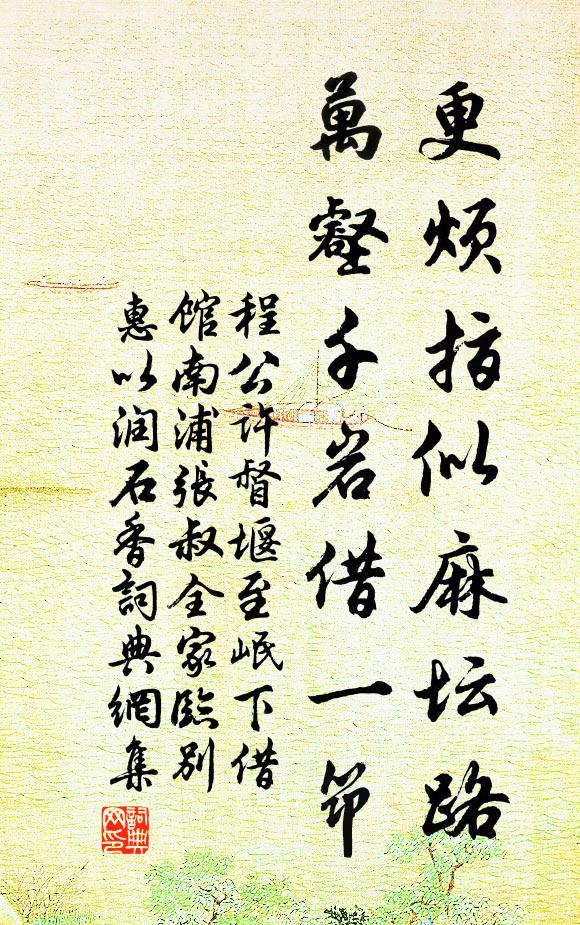 更烦指似麻坛路
萬壑千岩借一笻
程公許督堰至岷下借
馆南浦張叔全家臨别
惠以润石香詞典網集
詞典网印